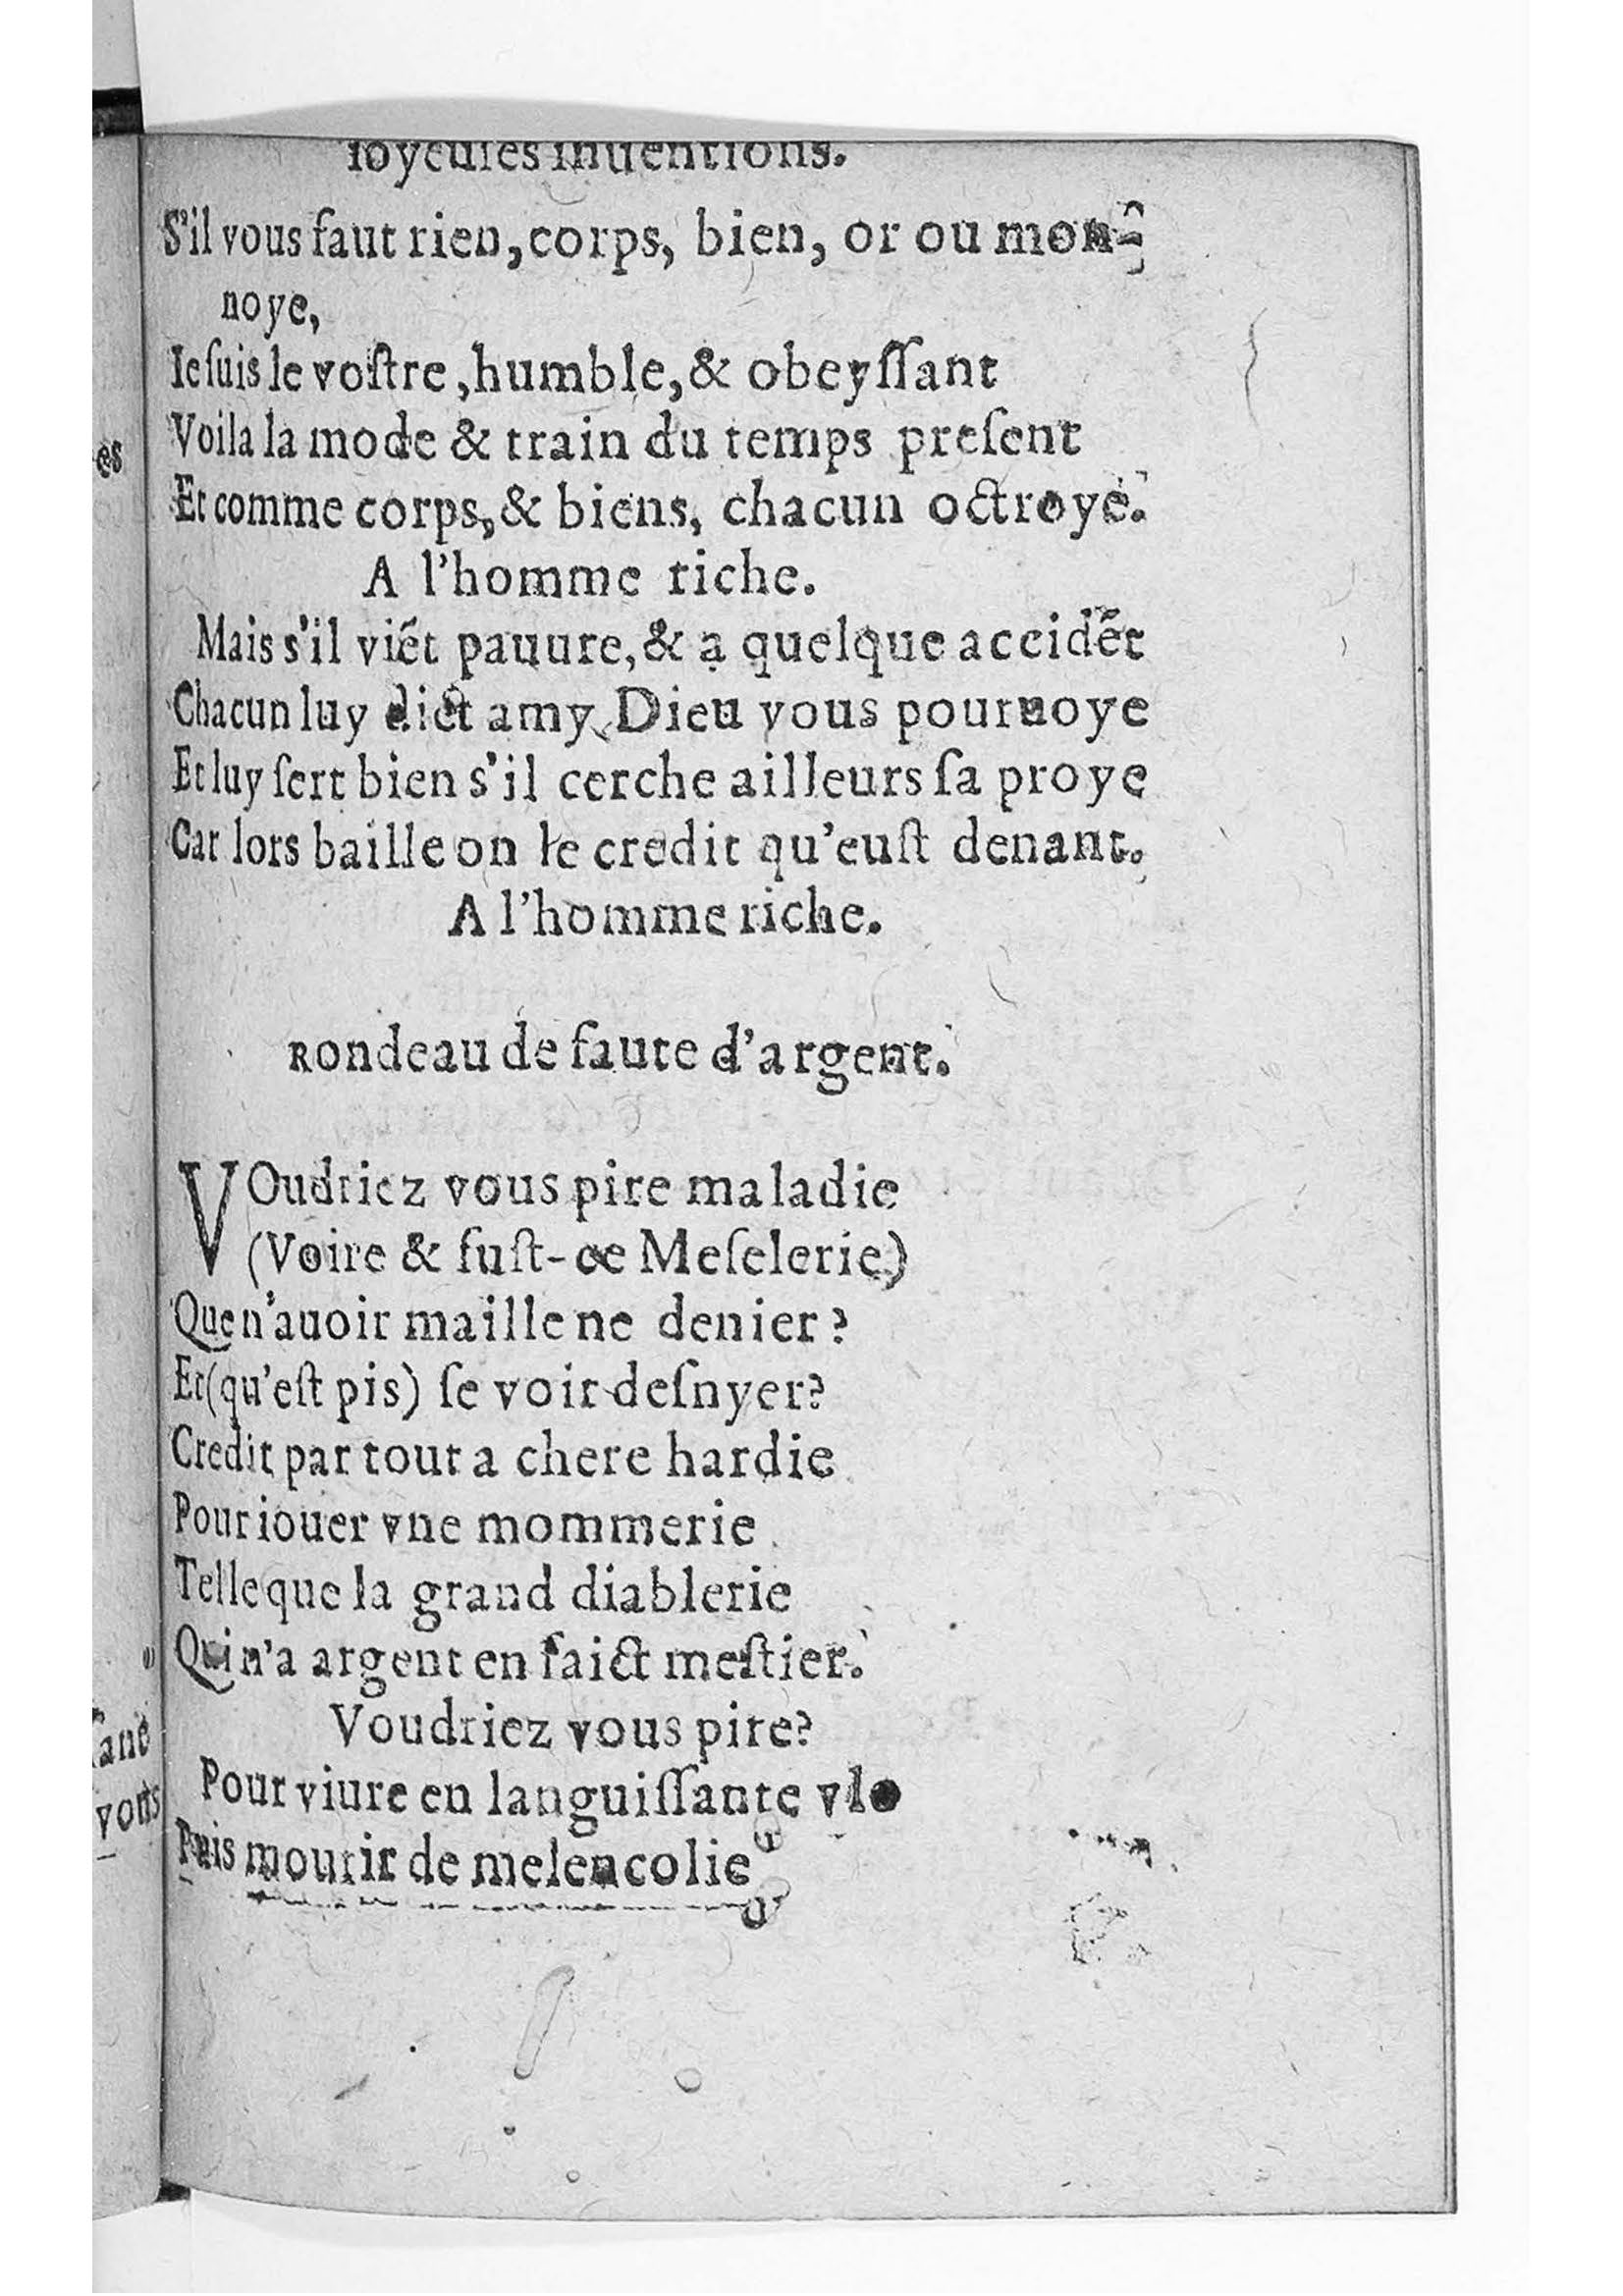 Ioyeuſes inuentions.
S'il vous faut rien, corps, bien, or ou mon-
noye,
Ie ſuis le voſtre, humble, & obeyſſant
Voila la mode & train du temps preſent
Et comme corps, & biens, chacun octroye.
A l'homme riche.
Mais s'il viẽt pauure, & a quelque accidẽt
Chacun luy dict amy, Dieu vous pouruoye
Et luy ſert bien s'il cerche ailleurs ſa proye
Car lors baille on le credit qu'euſt deuant.
A l'homme riche.
Rondeau de faute d'argent.
VOudriez vous pire maladie
(Voire & fuſt-ce Meſelerie)
Que n'auoir maille ne denier?
Et (qu'eſt pis) ſe voir deſnyer?
Credit par tout a chere hardie
Pour iouer vne mommerie
Telle que la grand diablerie
Qui n'a argent en faict meſtier.
Voudriez vous pire?
Pour viure en languiſſante
Puis mourir de melencolie